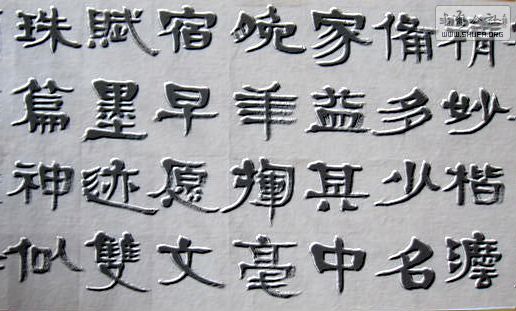 精妙楷灋
備多少名
家益其中
晚年揮毫
宿早愿文
賦墨迹雙
珠篇神似
WWW.SHUFA.ORG